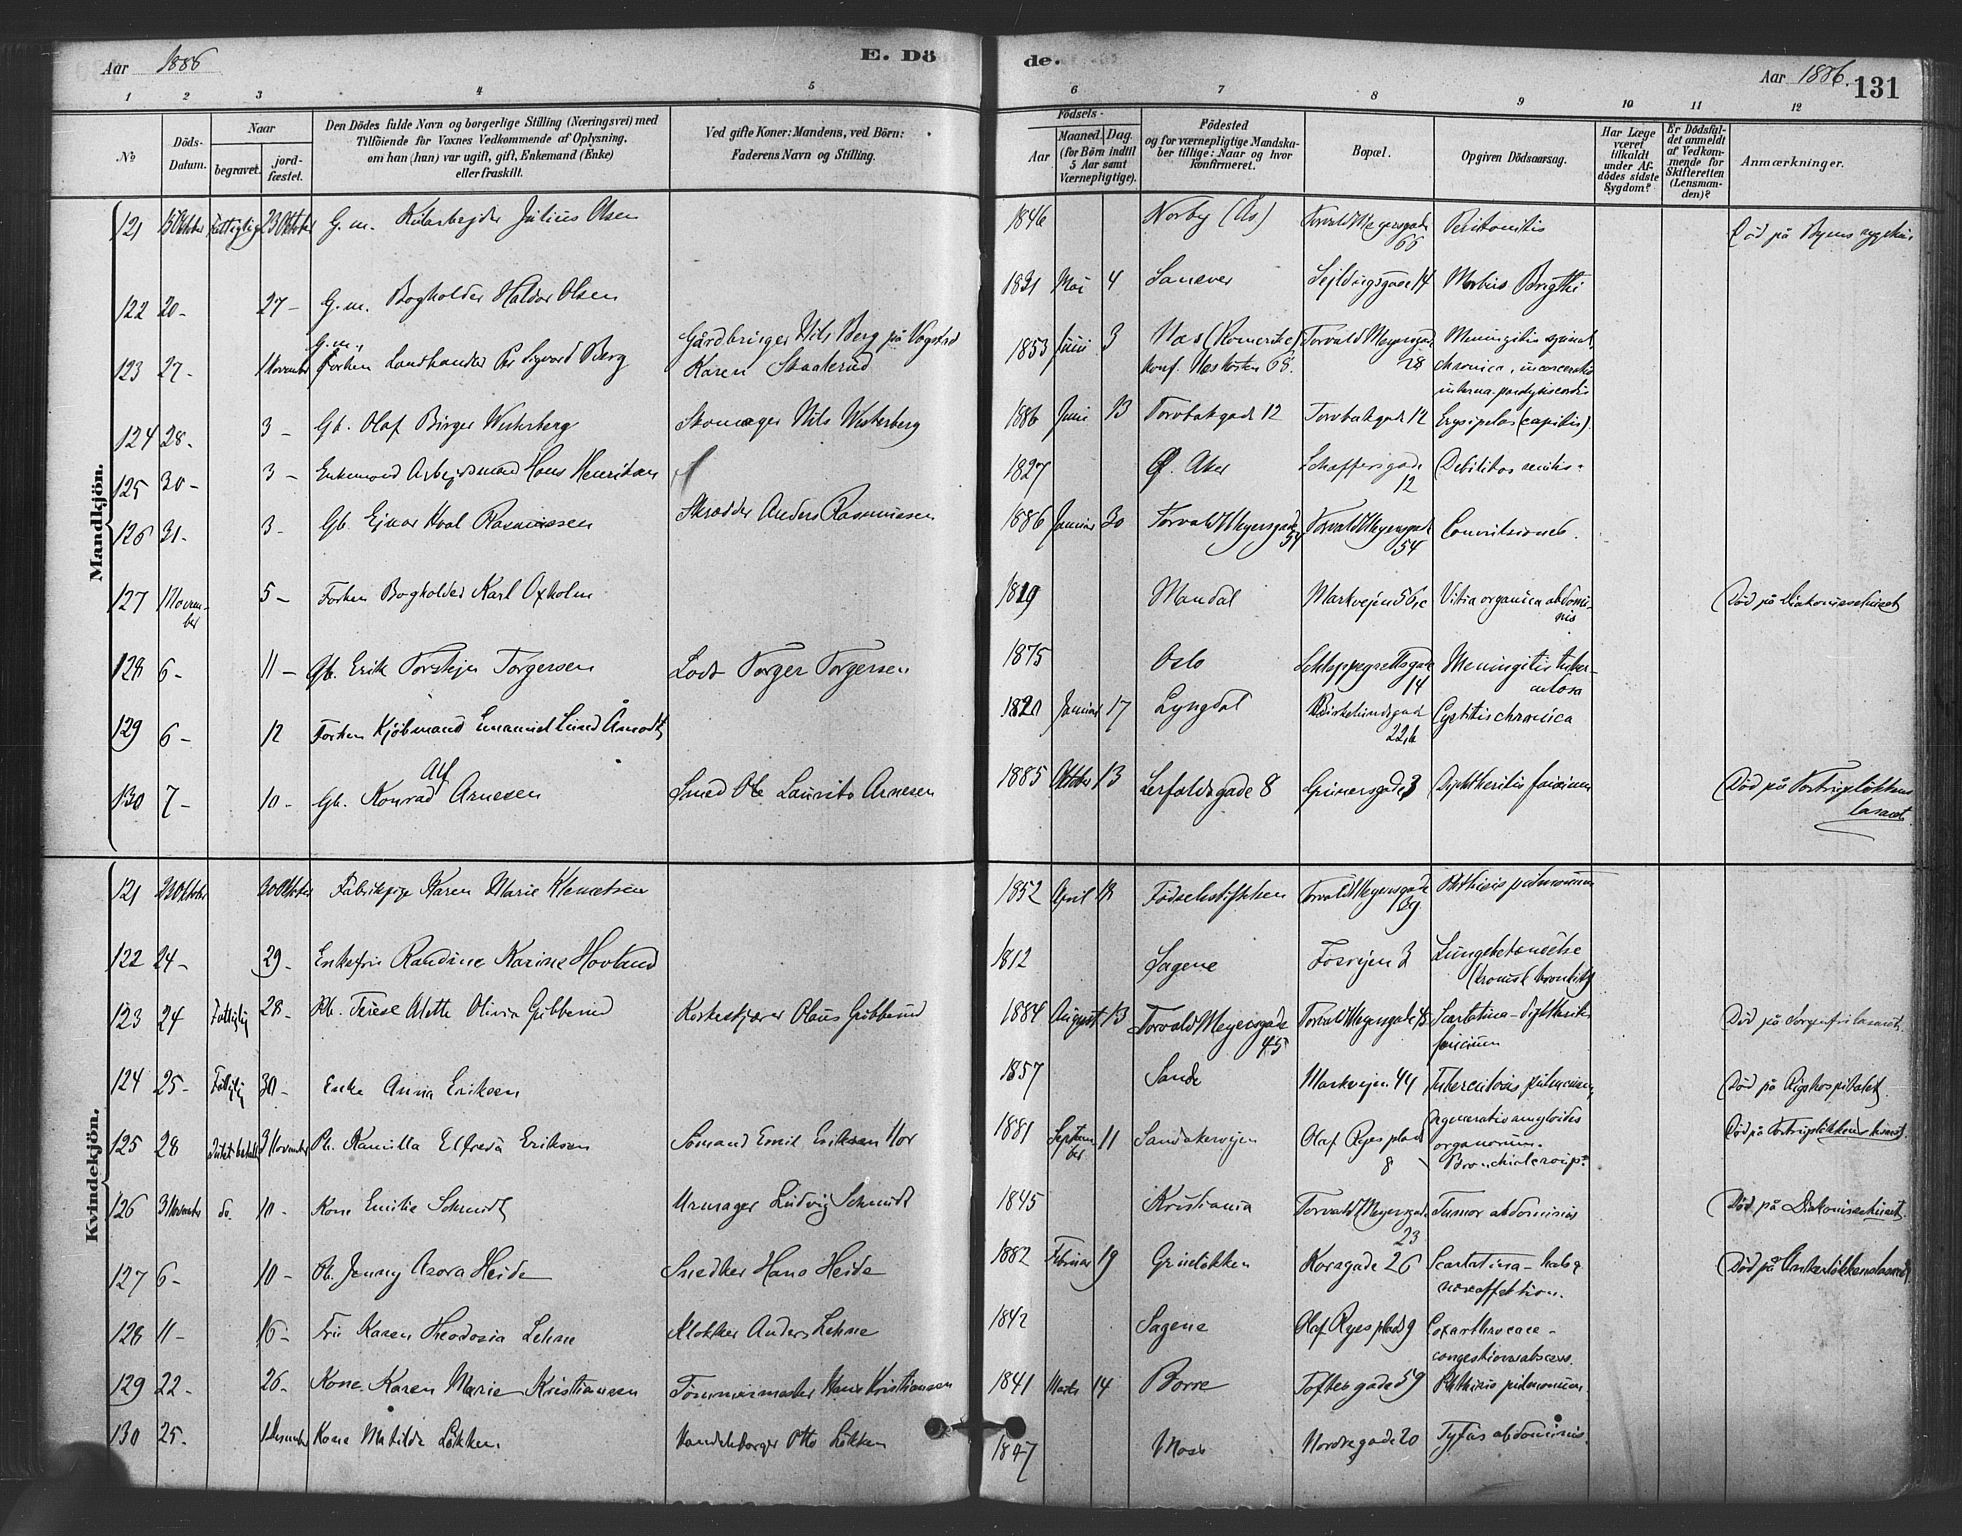 Aar 1886
E. Dö
de.
Aar 1886.
131
1 2 3 4 5 6 7 8 9 10 11 12
No
Döds-
Datum.
Naar
begravet.
jord-
fæstet.
Den Dödes fulde Navn og borgerlige Stilling (Næringsvei) med
Tilföiende for Voxnes Vedkommende af Oplysning,
om han (hun) var ugift, gift, Enkemand (Enke)
eller fraskilt.
Ved gifte Koner: Mandens, ved Börn:
Faderens Navn og Stilling.
Födsels-
Aar
Maaned.
Dag.
(for Börn indtil
5 Aar samt
Værnepligtige).
Födested
og for værnepligtige Mandska-
ber tillige: Naar og hvor
konfirmeret.
Bopæl.
Opgiven Dödsaarsag.
Har Læge
været
tilkaldt
under Af-
dödes sidste
Sygdom?
Er Dödsfal-
det anmeldt
af Vedkom-
mende for
Skifteretten
(Lensman-
den)?
Anmærkninger.
Mandkjön.
121 23 Oktober G. m. Julius Olsen 1846 Norby (Ås) Torvald Meyersgade 66 Peritonitis Död på Byens sygehus
122 20 - 27 - G. m. Bogholder Haldor Olsen 1831 Mai 4 14 Morbus Brigthi
123 27 - 1 November G. m. Forhen Landhandler Per Sigvard Berg Gårdbruger Nils Berg på Karen 1853 Juni 3 Nas (Romerike) Konf. 68. Torvald Meyersgade 28 Meningitis spinal. chronica, incarceratio interna. paralysis cordis
124 28 - 3 - Gb. Olaf Birger Westerberg Skomager Nils Westerberg 1886 Juni 13 Torvbakgade 12 Torvbakgade 12 Erysipelas (capitis).
125 30 - 3 - Enkemand Arbejdsmand Hans Henriksen 1827 Ø. Aker Schaffersgade 12 Debilitas senilis.
126 31 - 3 - Gb. Ejnar Hval Rasmussen Skrædder Anders Rasmussen 1886 Januar 30 Torvald Meyersgade 54 Torvald Meyersgade 54 Convulsiones.
127 November 5 - Forhen Bogholder Karl Oxholm 1819 Mandal Markvejen 56, c Vitia organica abdominis Död på Diakonissehuset
128 6 - 11 - Gb. Erik Torstejn Torgersen Lods Torger Torgersen 1875 Oslo Schleppegrellsgade 14 Meningitis tuberculosa
129 6 - 12 Forhen Kjöbmand Emanuel Lund Åmodt 1820 Januar 17 Lyngdal Birkelundsgad 22, b Cystitis chronica
130 7 - 10 - Gb. Konrad Alf Arnesen Smed Ole Laurits Arnesen 1885 Oktober 13 Lerfaldsgade 8 Grünersgade 3 Diphtheritis faucium Död på lasaret.
Kvindekjön.
121 23 Oktober 30 Oktober Fabrikpige Karen Marie Klemetsen 1852 April 18 Fødselsstiftelsen Torvald Meyersgade Phthisis pulmonum
122 24 - 29 - Enkefru Randine Karine Hovland 1812 Sagene Fosvejen 3 Lungebetændelse (kronisk bronkitis)
123 24 Fattiglig 28 - Pb. Terese Alette Olivia Gubberud Korkeskjærer Olaus Gubberud 1884 August 13 Torvald Meyersgade 45 Torvald Meyersgade 45 Scarlatina - diphtheritis faucium Död på Sorgenfri lasaret.
124 25 - Fattiglig 30 - Enke Anna Eriksen 1857 Sande Markvejen 44 Tuberculosis pulmonum, Död på Rigshospitalet.
125 28 3 November Pb. Kamilla Elfreda Eriksen Sömand Emil Eriksen Nor 1881 September 11 Sandakervejen Olaf Ryes plads 8 organorum. Död på
126 3 November do. 10 - Kone Emilie Schmidt Urmager Ludvig Schmidt 1845 Kristiania Torvald Meyersgade 23 Tumor abdominis Död på Diakonissehuset.
127 6 - 10 - Pb. Jenny Asora Heide Snedker Hans Heide 1882 Februar 19 Grünelökken Korsgade 26 Scarlatina - Död på Ankerlökkens lasaret
128 11 - 16 - Fru Karen Theodosia Lehne Klokker Anders Lehne 1842 Sagene Olaf Ryes plads 9 Coxarthrocace - congestionsabscess.
129 22 - 26 - Kone Karen Marie Kristiansen Tömmermester Hans Kristiansen 1841 Marts 14 Borre Toftesgade 59 Phthisis pulmonum.
130 25 - 1 Desember Kone Matilde Lökken Handelsborger Otto Lökken 1847 Moss Nordregade 20 Tyfus abdominis.